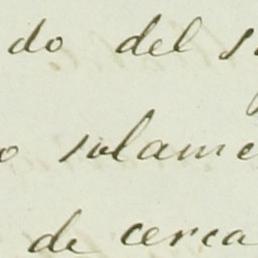 do del s
o solame
de cerca